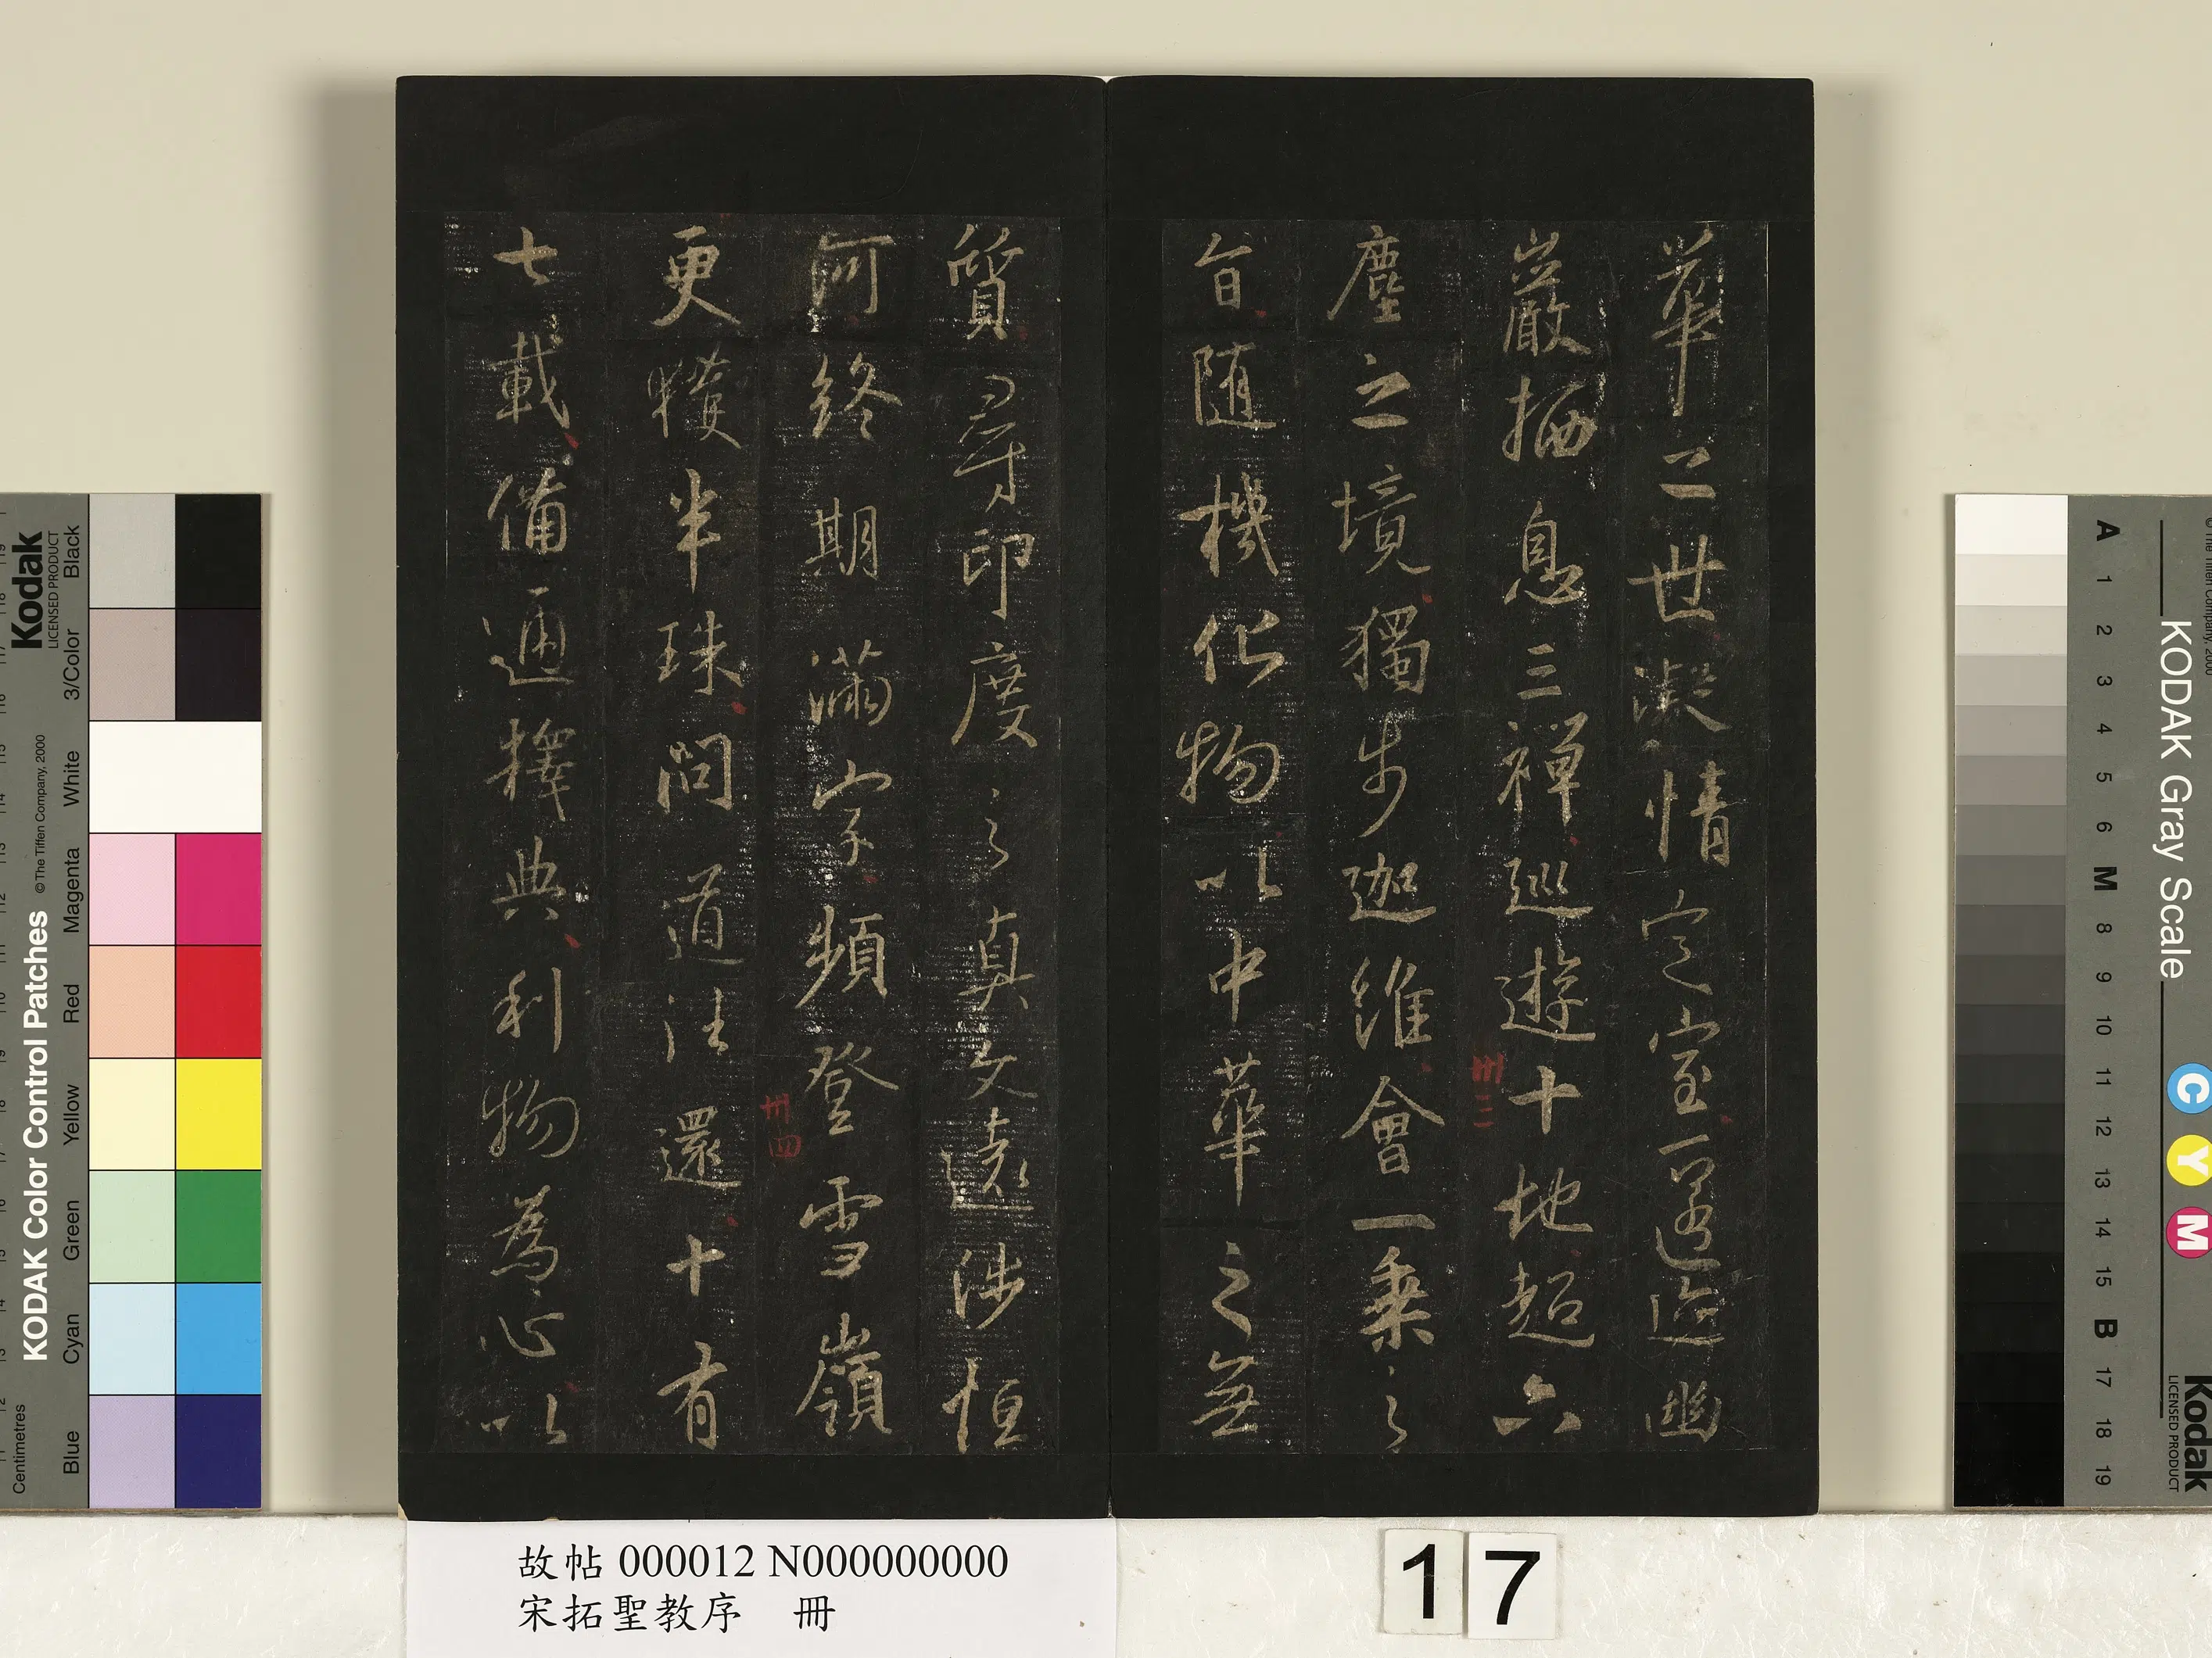 華之世凝情定室匿迹幽
巖栖息三禪巡遊十地超六
卅三
塵之境獨步迦維會一乘之
旨随機化物以中華之無
質尋印度之真文遠涉恒
河終期滿字頻登雪嶺
卅四
更獲半珠問道往還十有
七載備通釋典利物為心以
故帖 000012 N000000000
宋拓聖教序 冊
17
Kodak
LICENSED PRODUCT
KODAK Color Control Patches
© The Tiffen Company, 2000
Centimetres
Blue Cyan Green Yellow Red Magenta White 3/Color Black
KODAK Gray Scale
A 1 2 3 4 5 6 M 8 9 10 11 12 13 14 15 B 17 18 19
C Y M
Kodak
LICENSED PRODUCT